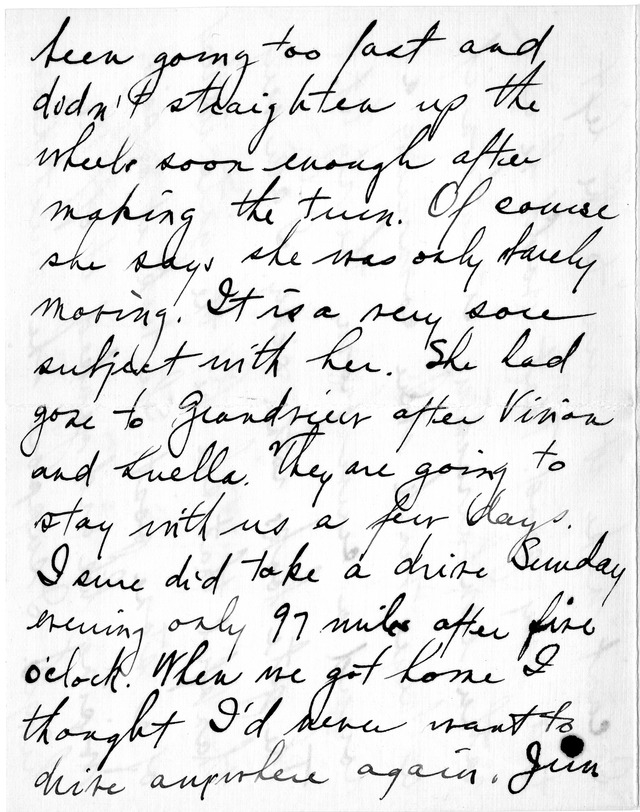 been going too fast and
didn't straighten up the
wheels soon enough after
making the turn. Of course
she says she was only barely
moving. It is a very sore
subject with her. She had
gone to Grandview after Vivian
and Luella. They are going to
stay with us a few days.
I sure did take a drive Sunday
evening only 97 miles after five
o'clock. When we got home I
thought I'd never want to
drive anywhere again. Jim